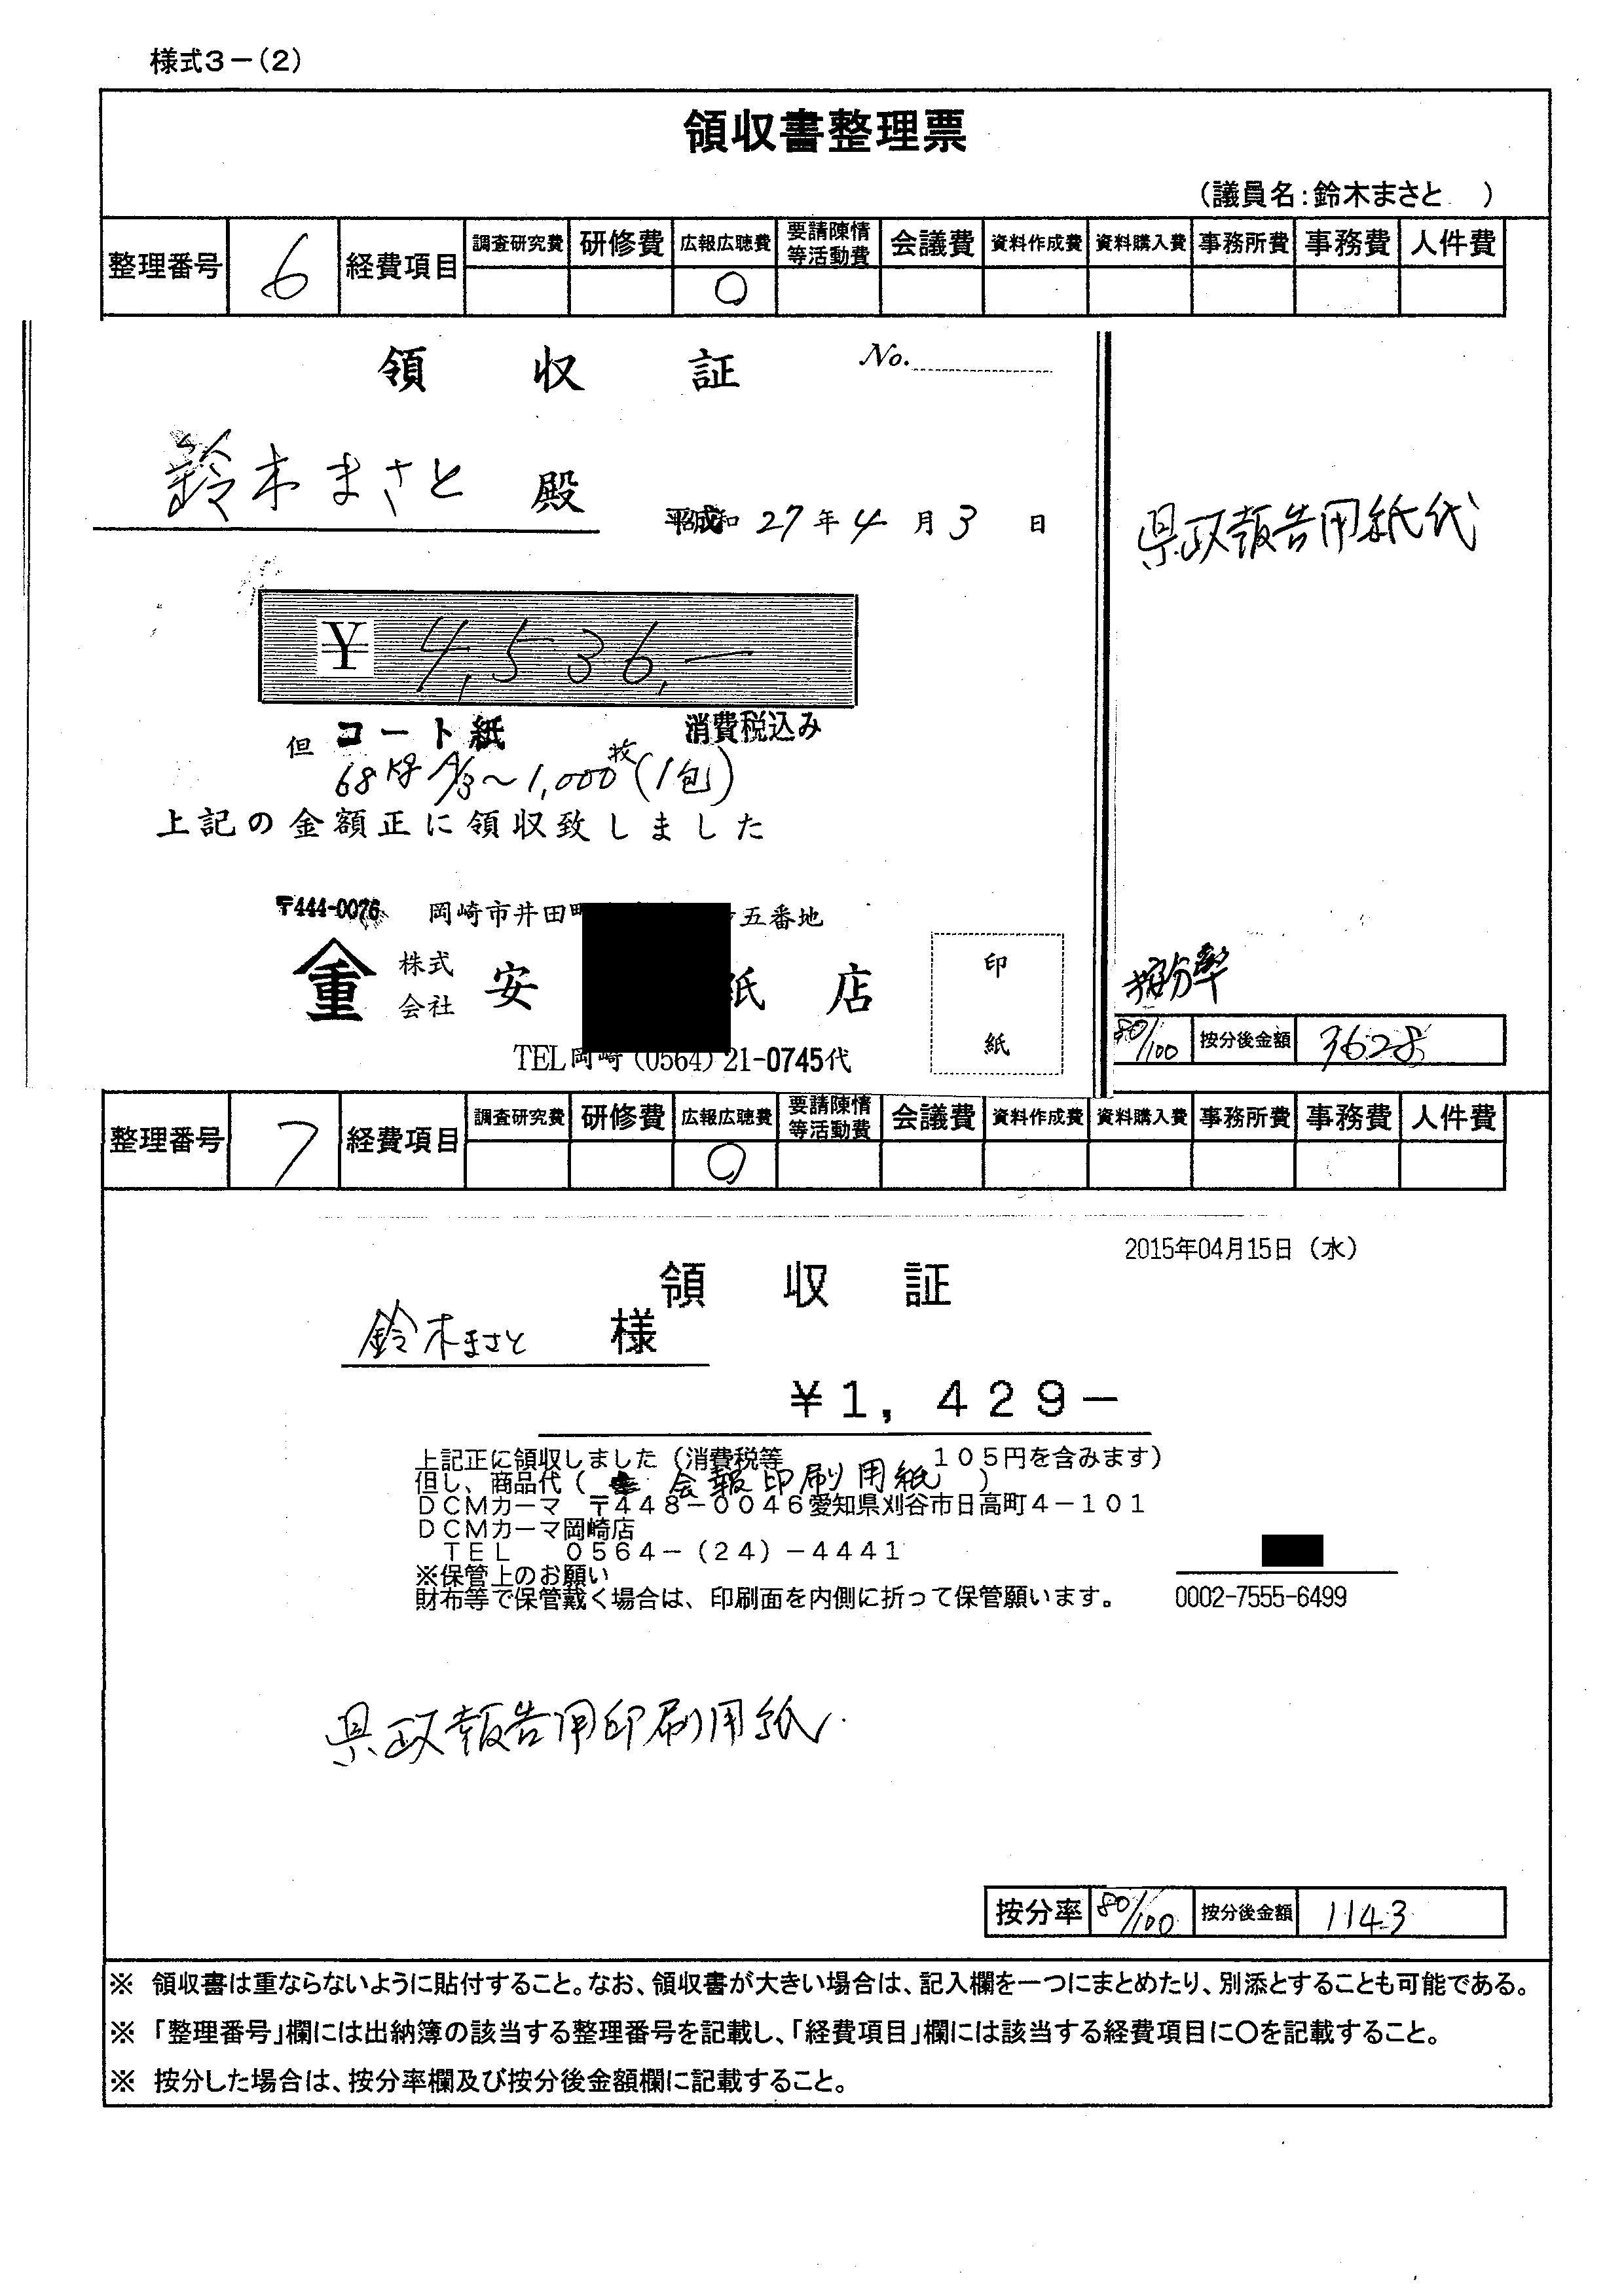 様式3－(2)
領収書整理票
(議員名:鈴木まさと )
整理番号 6 経費項目 調査研究費 研修費 広報広聴費 要請陳情等活動費 会議費 資料作成費 資料購入費 事務所費 事務費 人件費
○
領 収 証 No.
鈴木まさと 殿
平成 27年4月3日
県政報告用紙代
¥ 4,536.—
但 コート紙 消費税込み
68kg A/3～1,000枚(1包)
上記の金額正に領収致しました
〒444-0076 岡崎市井田町 五番地
重 株式会社 安 紙店
印紙
TEL岡崎(0564)21-0745代
按分率 80/100 按分後金額 3628
整理番号 7 経費項目 調査研究費 研修費 広報広聴費 要請陳情等活動費 会議費 資料作成費 資料購入費 事務所費 事務費 人件費
○
2015年04月15日(水)
領 収 証
鈴木まさと 様
¥1,429－
上記正に領収しました(消費税等 105円を含みます)
但し、商品代( 会報印刷用紙 )
DCMカーマ 〒448－0046愛知県刈谷市日高町4－101
DCMカーマ岡崎店
TEL 0564－(24)－4441
※保管上のお願い
財布等で保管戴く場合は、印刷面を内側に折って保管願います。
0002-7555-6499
県政報告用印刷用紙.
按分率 80/100 按分後金額 1143
※ 領収書は重ならないように貼付すること。なお、領収書が大きい場合は、記入欄を一つにまとめたり、別添とすることも可能である。
※ 「整理番号」欄には出納簿の該当する整理番号を記載し、「経費項目」欄には該当する経費項目に○を記載すること。
※ 按分した場合は、按分率欄及び按分後金額欄に記載すること。